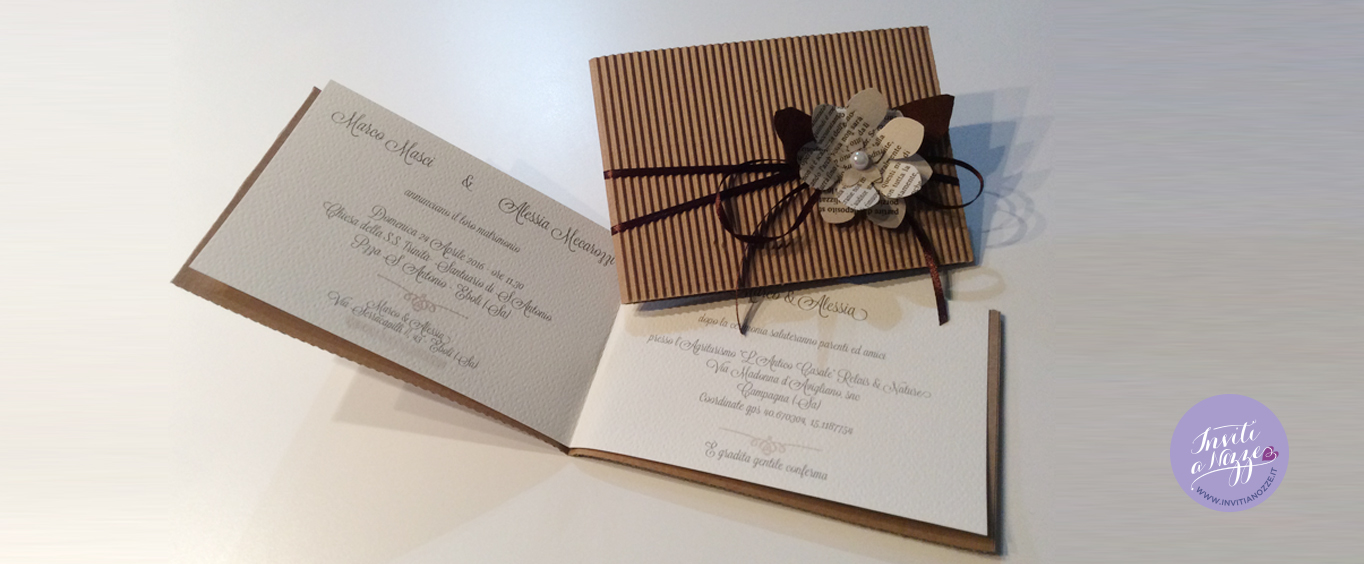 Marco Masci
&
Alessia Mecarozzi
annunciano il loro matrimonio
Domenica 24 Aprile 2016 - ore 11.30
Chiesa della S.S. Trinità - Santuario di S. Antonio
P.zza S. Antonio - Eboli (Sa)
Marco & Alessia
Via Serracapilli, 45 - Eboli (Sa)
Marco & Alessia
dopo la cerimonia saluteranno parenti ed amici
presso l'Agriturismo "L'Antico Casale" Relais & Nature
Via Madonna d'Avigliano, snc
Campagna (Sa)
Coordinate gps 40.670304, 15.1187754
È gradita gentile conferma
Inviti
a Nozze
WWW.INVITIANOZZE.IT